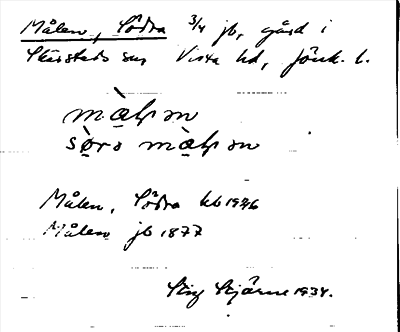 Målen, Södra 3/4 jb, gård i
Skärstads sn Vista hd, Jönk. l.
màḷɔn
sø̀rɔ màḷɔn
Målen, Södra kb 1936
Målen jb 1877
Stig Stjärne 1934.